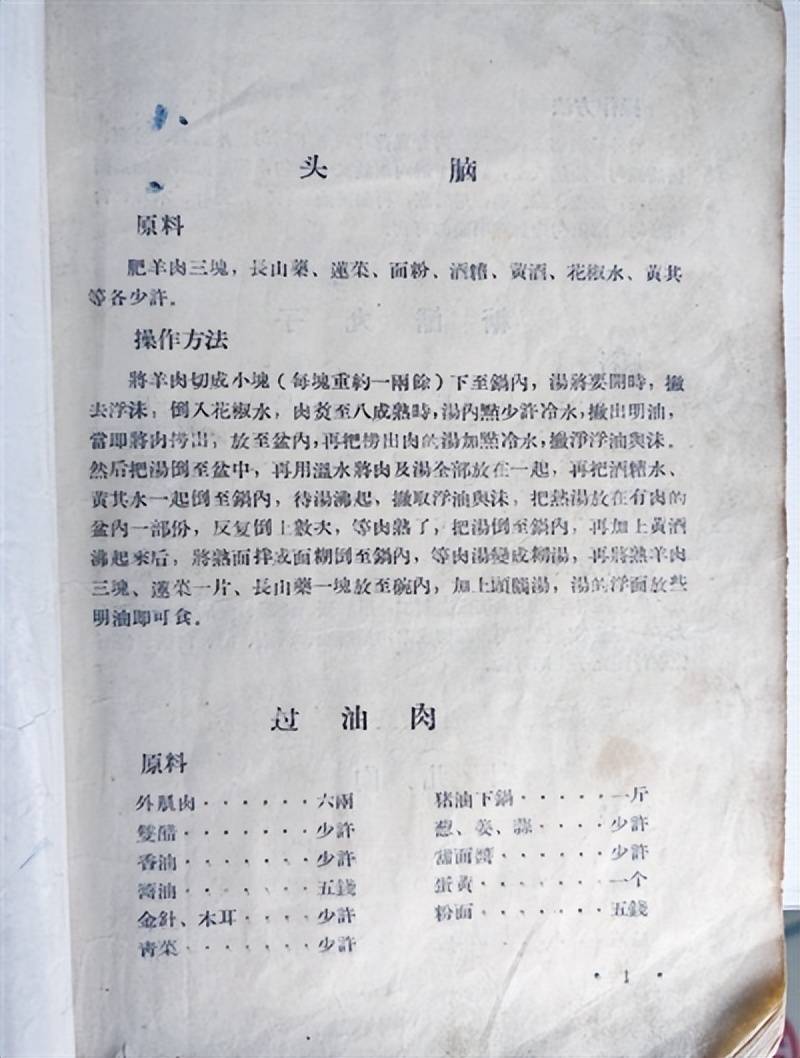 头 脑
原料
肥羊肉三塊，長山藥、蓮菜、面粉、酒糟、黃酒、花椒水、黃其
等各少許。
操作方法
將羊肉切成小塊（每塊重約一兩餘）下至鍋內，湯將要開時，撇
去浮沫，倒入花椒水，肉煑至八成熟時，湯內點少許冷水，撇出明油，
當即將肉捞出，放至盆內，再把捞出肉的湯加點冷水，撇淨浮油與沫。
然后把湯倒至盆中，再用溫水將肉及湯全部放在一起，再把酒糟水、
黃其水一起倒至鍋內，待湯沸起，撇取浮油與沫，把熱湯放在有肉的
盆內一部份，反复倒上數次，等肉熟了，把湯倒至鍋內，再加上黃酒
沸起來后，將熟面拌成面糊倒至鍋內，等肉湯變成糊湯，再將熟羊肉
三塊、蓮菜一片、長山藥一塊放至碗內，加上頭腦湯，湯的浮面放些
明油即可食。
过 油 肉
原料
外肌肉······六兩 猪油下鍋·····一斤
醋······少許 葱、姜、蒜····少許
香油······少許 面醬·····少許
醬油······五錢 蛋黃······一个
金針、木耳····少許 粉面······五錢
青菜······少許
· 1 ·